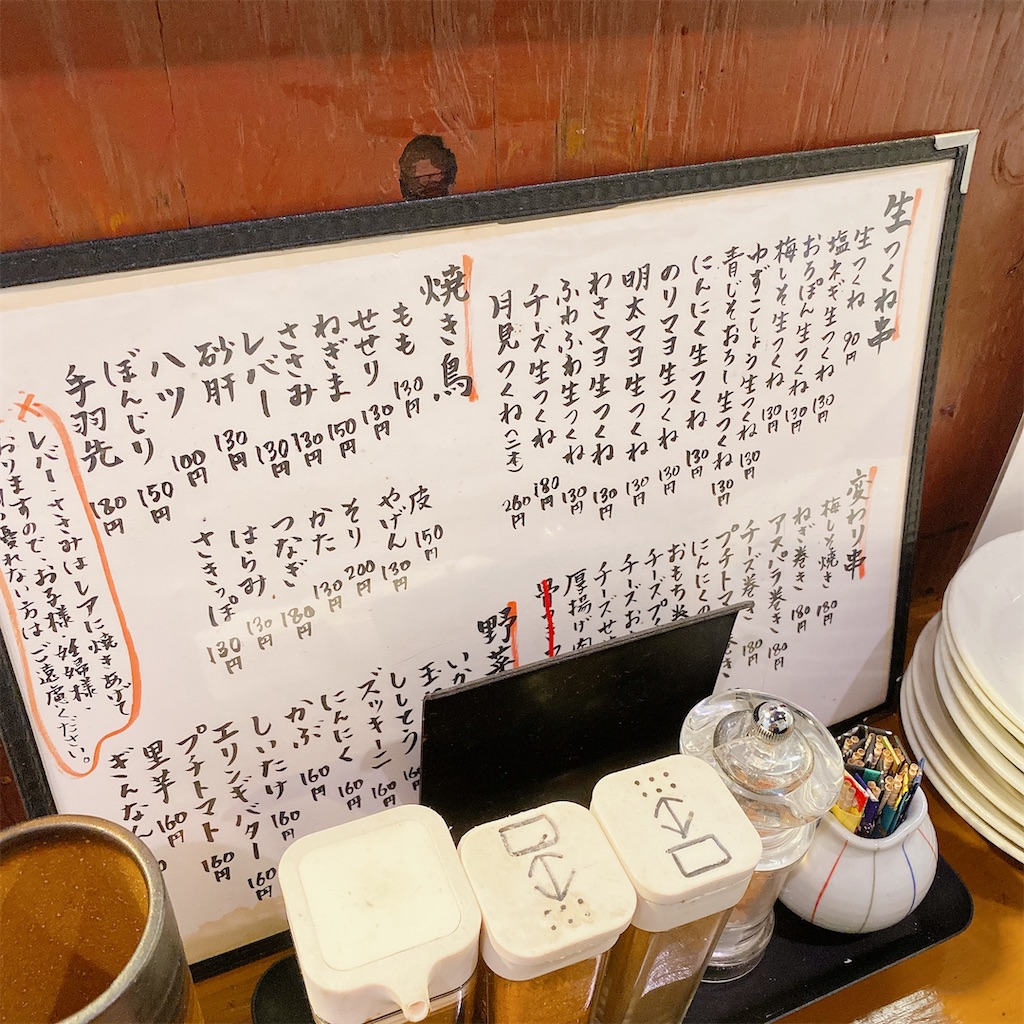 生つくね串
生つくね 90円
塩ネギ生つくね 130円
おろぽん生つくね 130円
梅しそ生つくね 130円
ゆずこしょう生つくね 130円
青じそおろし生つくね 130円
にんにく生つくね 130円
のりマヨ生つくね 130円
明太マヨ生つくね 130円
わさマヨ生つくね 130円
ふわふわ生つくね 130円
チーズ生つくね 180円
月見つくね(二本) 260円
変わり串
梅しそ焼き 180円
ねぎ巻き 180円
アスパラ巻き 180円
チーズ巻き 180円
プチトマ
にんにくの
おもち巻
チーズプ
チーズお
チーズせ
厚揚げ肉
焼き鳥
もも 130円
せせり 130円
ねぎま 150円
ささみ 130円
レバー 130円
砂肝 130円
ハツ 100円
ぼんじり 150円
手羽先 180円
皮 150円
やげん 130円
そり 200円
かた 130円
つなぎ 180円
はらみ 130円
さきっぽ 130円
野菜
いか
玉
ししとう 160
ズッキーニ 160
にんにく 160円
かぶ 160円
しいたけ 160円
エリンギバター 160円
プチトマト 160円
里芋 160円
ぎんなん
×レバー・ささみはレアに焼きあげて
おりますので、お子様・妊婦様、
優れない方はご遠慮ください。